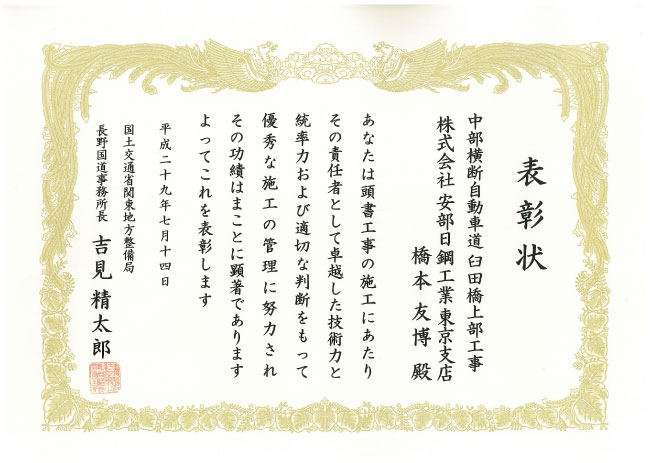 表彰状
中部横断自動車道 臼田橋上部工事
株式会社 安部日鋼工業 東京支店
橋本 友博 殿
あなたは頭書工事の施工にあたり
その責任者として卓越した技術力と
統率力および適切な判断をもって
優秀な施工の管理に努力され
その功績はまことに顕著であります
よってこれを表彰します
平成二十九年七月十四日
国土交通省関東地方整備局
長野国道事務所長 吉見 精太郎